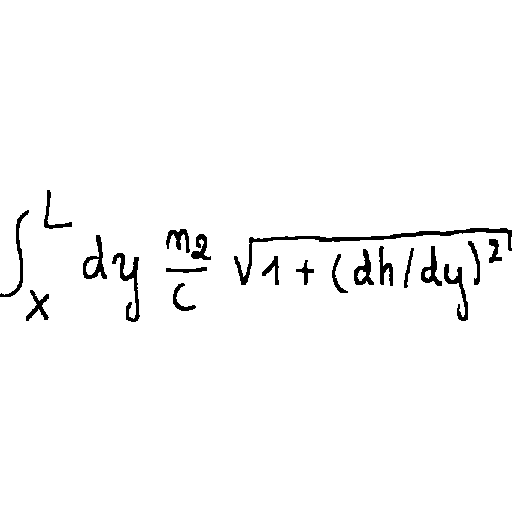 \int_{x}^{L} dy \frac{n_2}{c} \sqrt{1 + (dh/dy)^2}